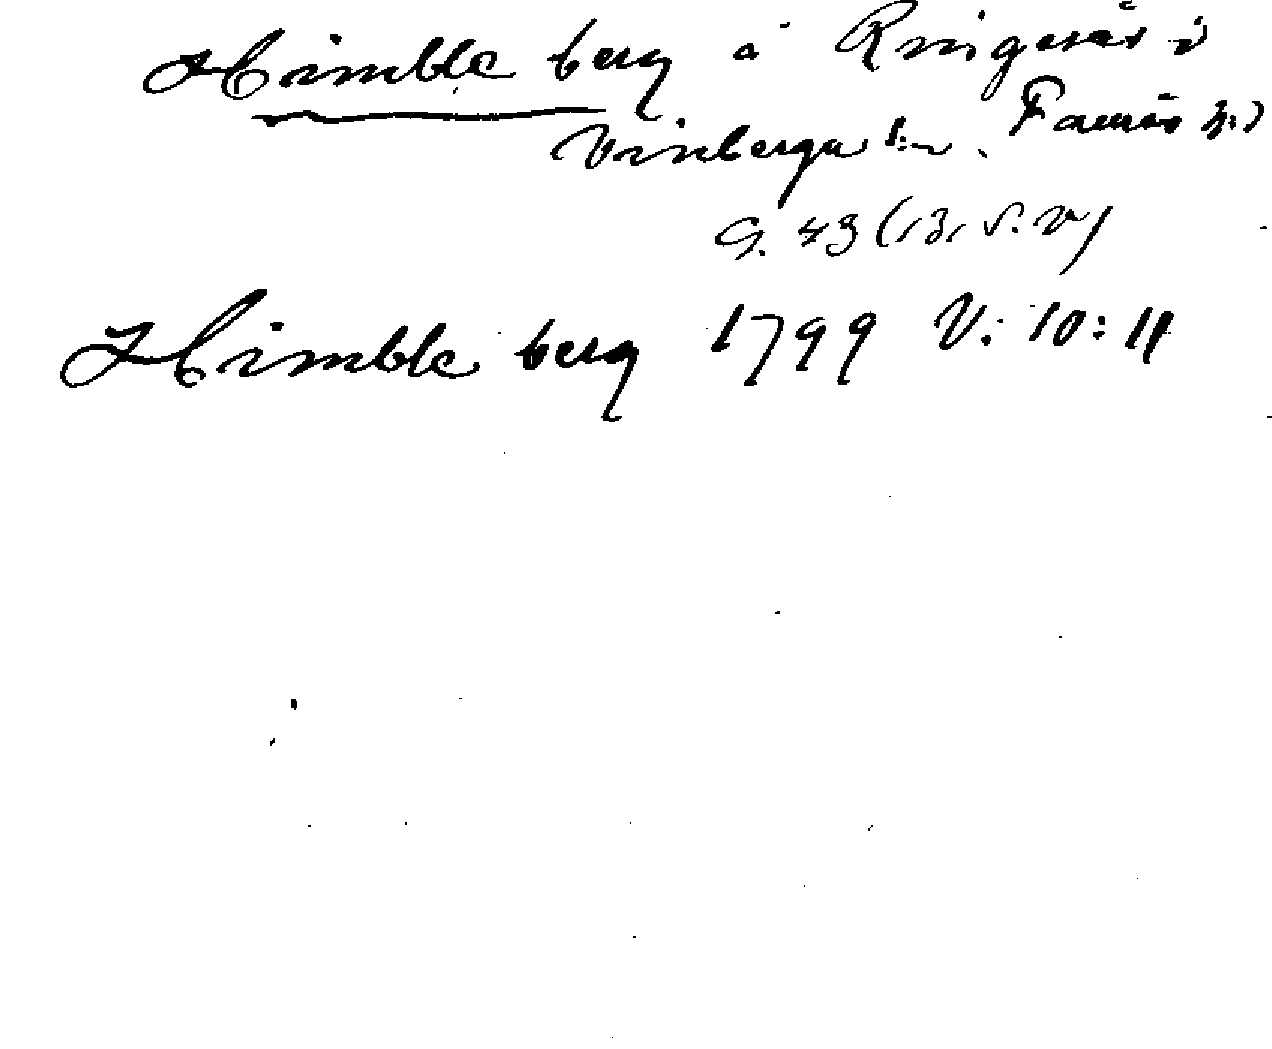 Himble berg å Ringsår i
Vinberga s:n. Faurås hd
G. 43 (131 s. v)
Himble berg 1799 V: 10: 4